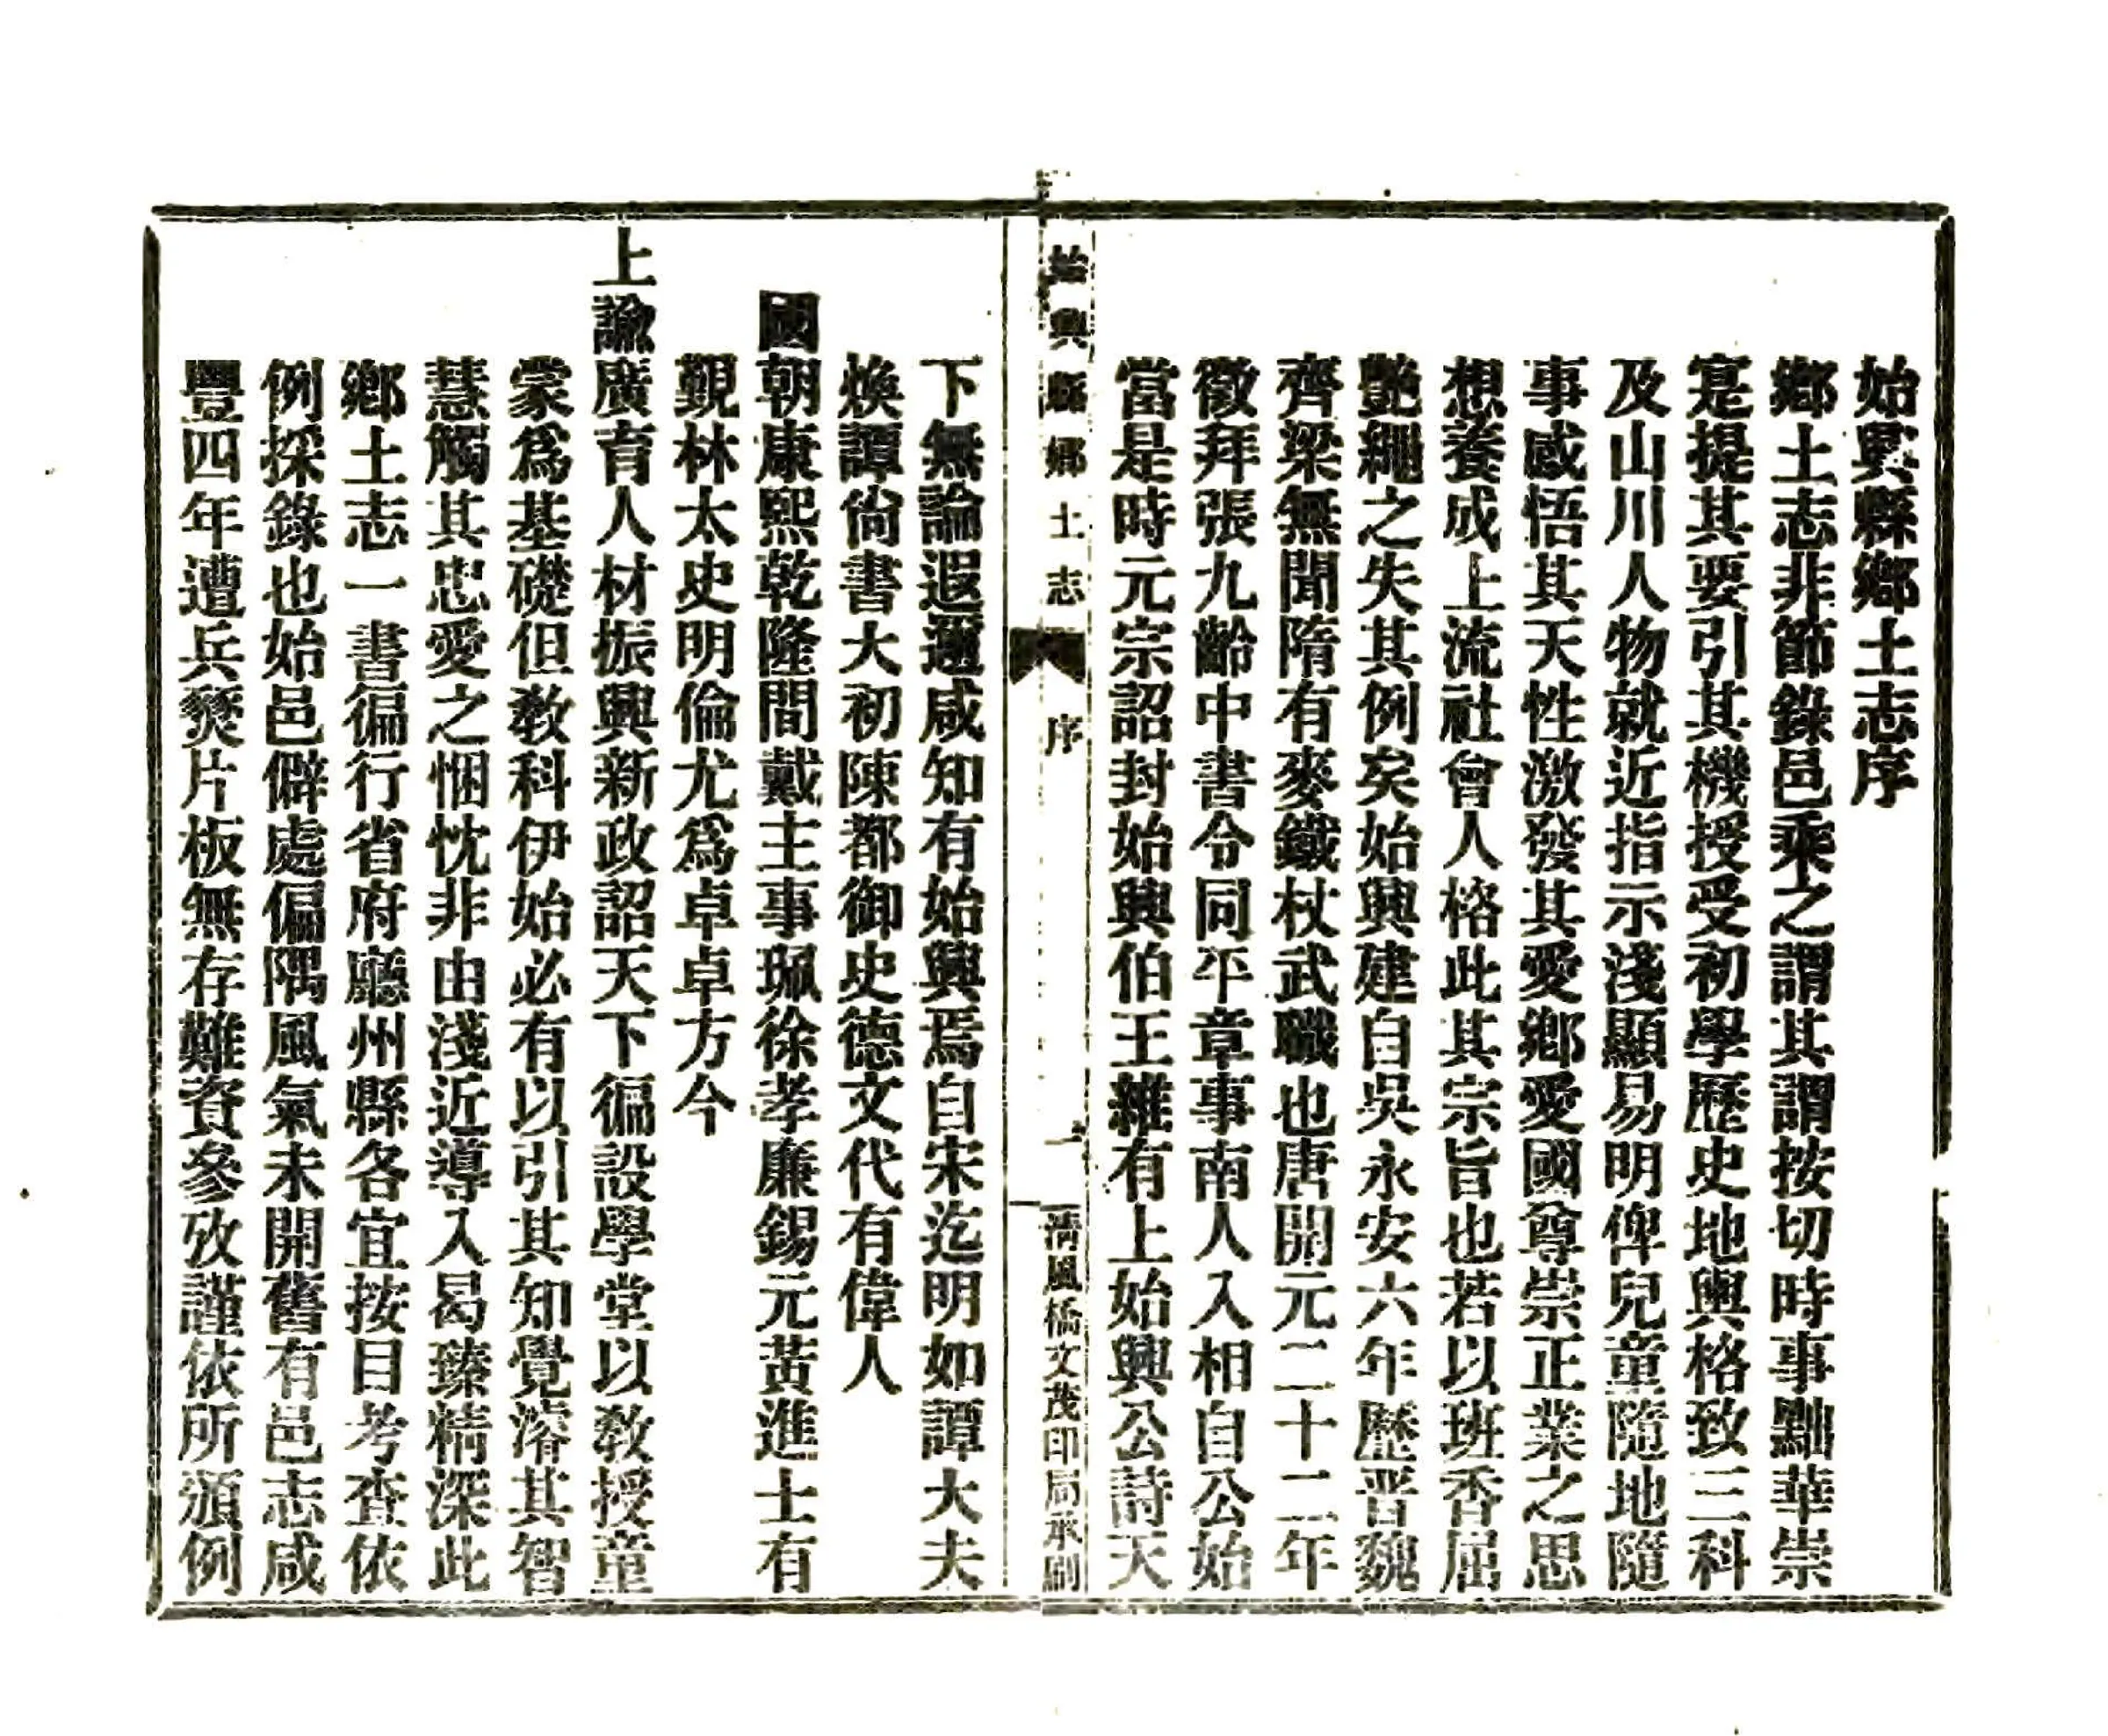 始興縣鄉土志序
鄉土志非節錄邑乘之謂其謂按切時事黜華崇
寔提其要引其機授受初學歷史地輿格致三科
及山川人物就近指示淺顯易明俾兒童隨地隨
事感悟其天性激發其愛鄉愛國尊崇正業之思
想養成上流社會人格此其宗旨也若以班香屈
艷繩之失其例矣始興建自吳永安六年歷晋魏
齊梁無聞隋有麥鐵杖武職也唐開元二十二年
徵拜張九齡中書令同平章事南人入相自公始
當是時元宗詔封始興伯王維有上始興公詩天
始興縣鄉土志
序
一
清風橋文茂印局承刷
下無論遐邇咸知有始興焉自宋迄明如譚大夫
煥譚尙書大初陳都御史德文代有偉人
國朝康熙乾隆間戴主事珮徐孝廉錫元黃進士有
覲林太史明倫尤爲卓卓方今
上諭廣育人材振興新政詔天下徧設學堂以敎授童
蒙爲基礎但敎科伊始必有以引其知覺濬其智
慧觸其忠愛之悃忱非由淺近導入曷臻精深此
鄉土志一書徧行省府廳州縣各宜按目考查依
例採錄也始邑僻處偏隅風氣未開舊有邑志咸
豐四年遭兵燹片板無存難資參攷謹依所頒例